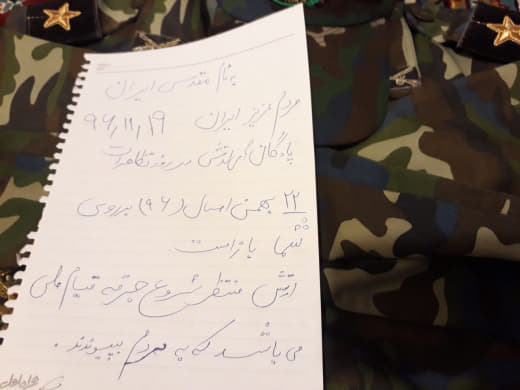 بنام مقدس ایران
مردم عزیز ایران ۹۶٫۱۱٫۱۹
پادگان های ارتش در روز تظاهرات
۲۲ بهمن امسال (۹۶) بروی
شما باز است
ارتش منتظر شروع جرقه قیام ملی
می باشد که به مردم بپیوندند.
همراه اول